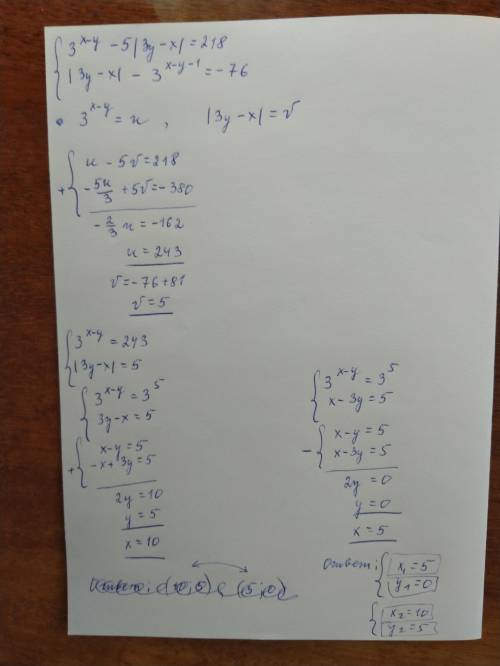 3^{x-y} - 5|3y-x| = 218
|3y-x| - 3^{x-y-1} = -76
• 3^{x-y} = u, |3y-x| = v
+ { u - 5v = 218
-5u/3 + 5v = -380
-2/3 u = -162
u = 243
v = -76 + 81
v = 5
3^{x-y} = 243
|3y-x| = 5
3^{x-y} = 3^5
3y-x = 5
+ { x-y = 5
-x+3y = 5
2y = 10
y = 5
x = 10
3^{x-y} = 3^5
x-3y = 5
- { x-y = 5
x-3y = 5
2y = 0
y = 0
x = 5
Ответ: (10;5) (5;0)
Ответ: { x₁ = 5
y₁ = 0
{ x₂ = 10
y₂ = 5